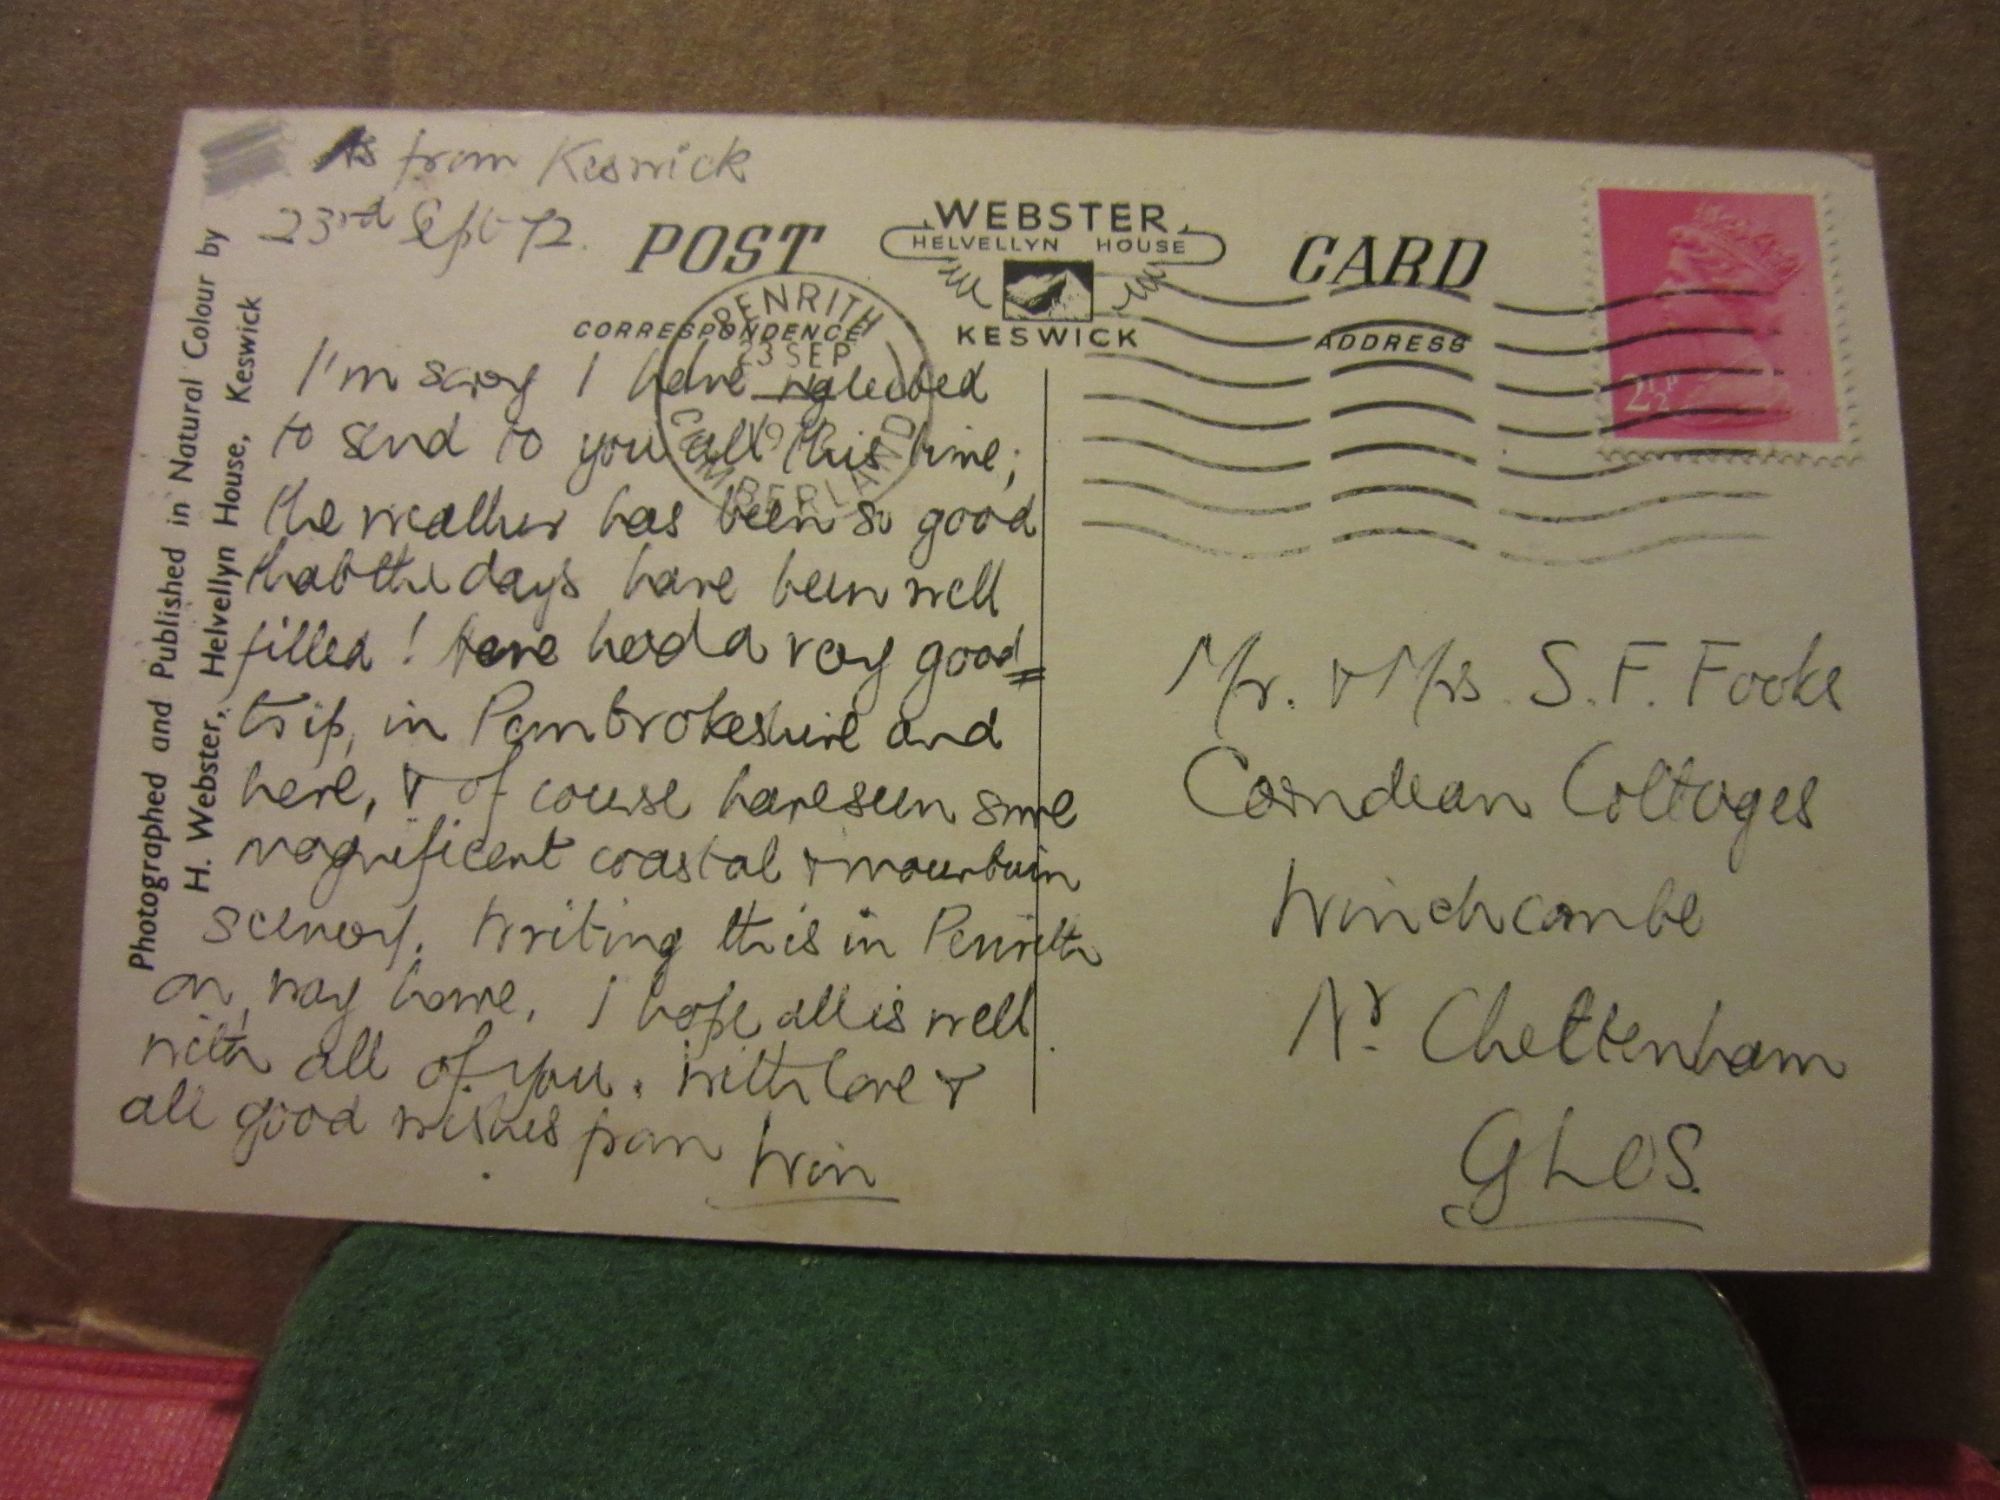 As from Keswick
23rd Sept 72.
POST
WEBSTER
HELVELLYN HOUSE
KESWICK
CARD
CORRESPONDENCE
ADDRESS
PENRITH
23 SEP
1972
CUMBERLAND
2½P
Photographed and Published in Natural Colour by
H. Webster, Helvellyn House, Keswick
I'm sorry I have neglected
to send to you all this time;
the weather has been so good
that the days have been well
filled! Have had a very good
trip, in Pembrokeshire and
here, & of course have seen some
magnificent coastal & mountain
scenery. Writing this in Penrith
on way home. I hope all is well
with all of you. With love &
all good wishes from Win
Mr. & Mrs. S. F. Fooks
Corndean Cottages
Winchcombe
Nr Cheltenham
GLOS.